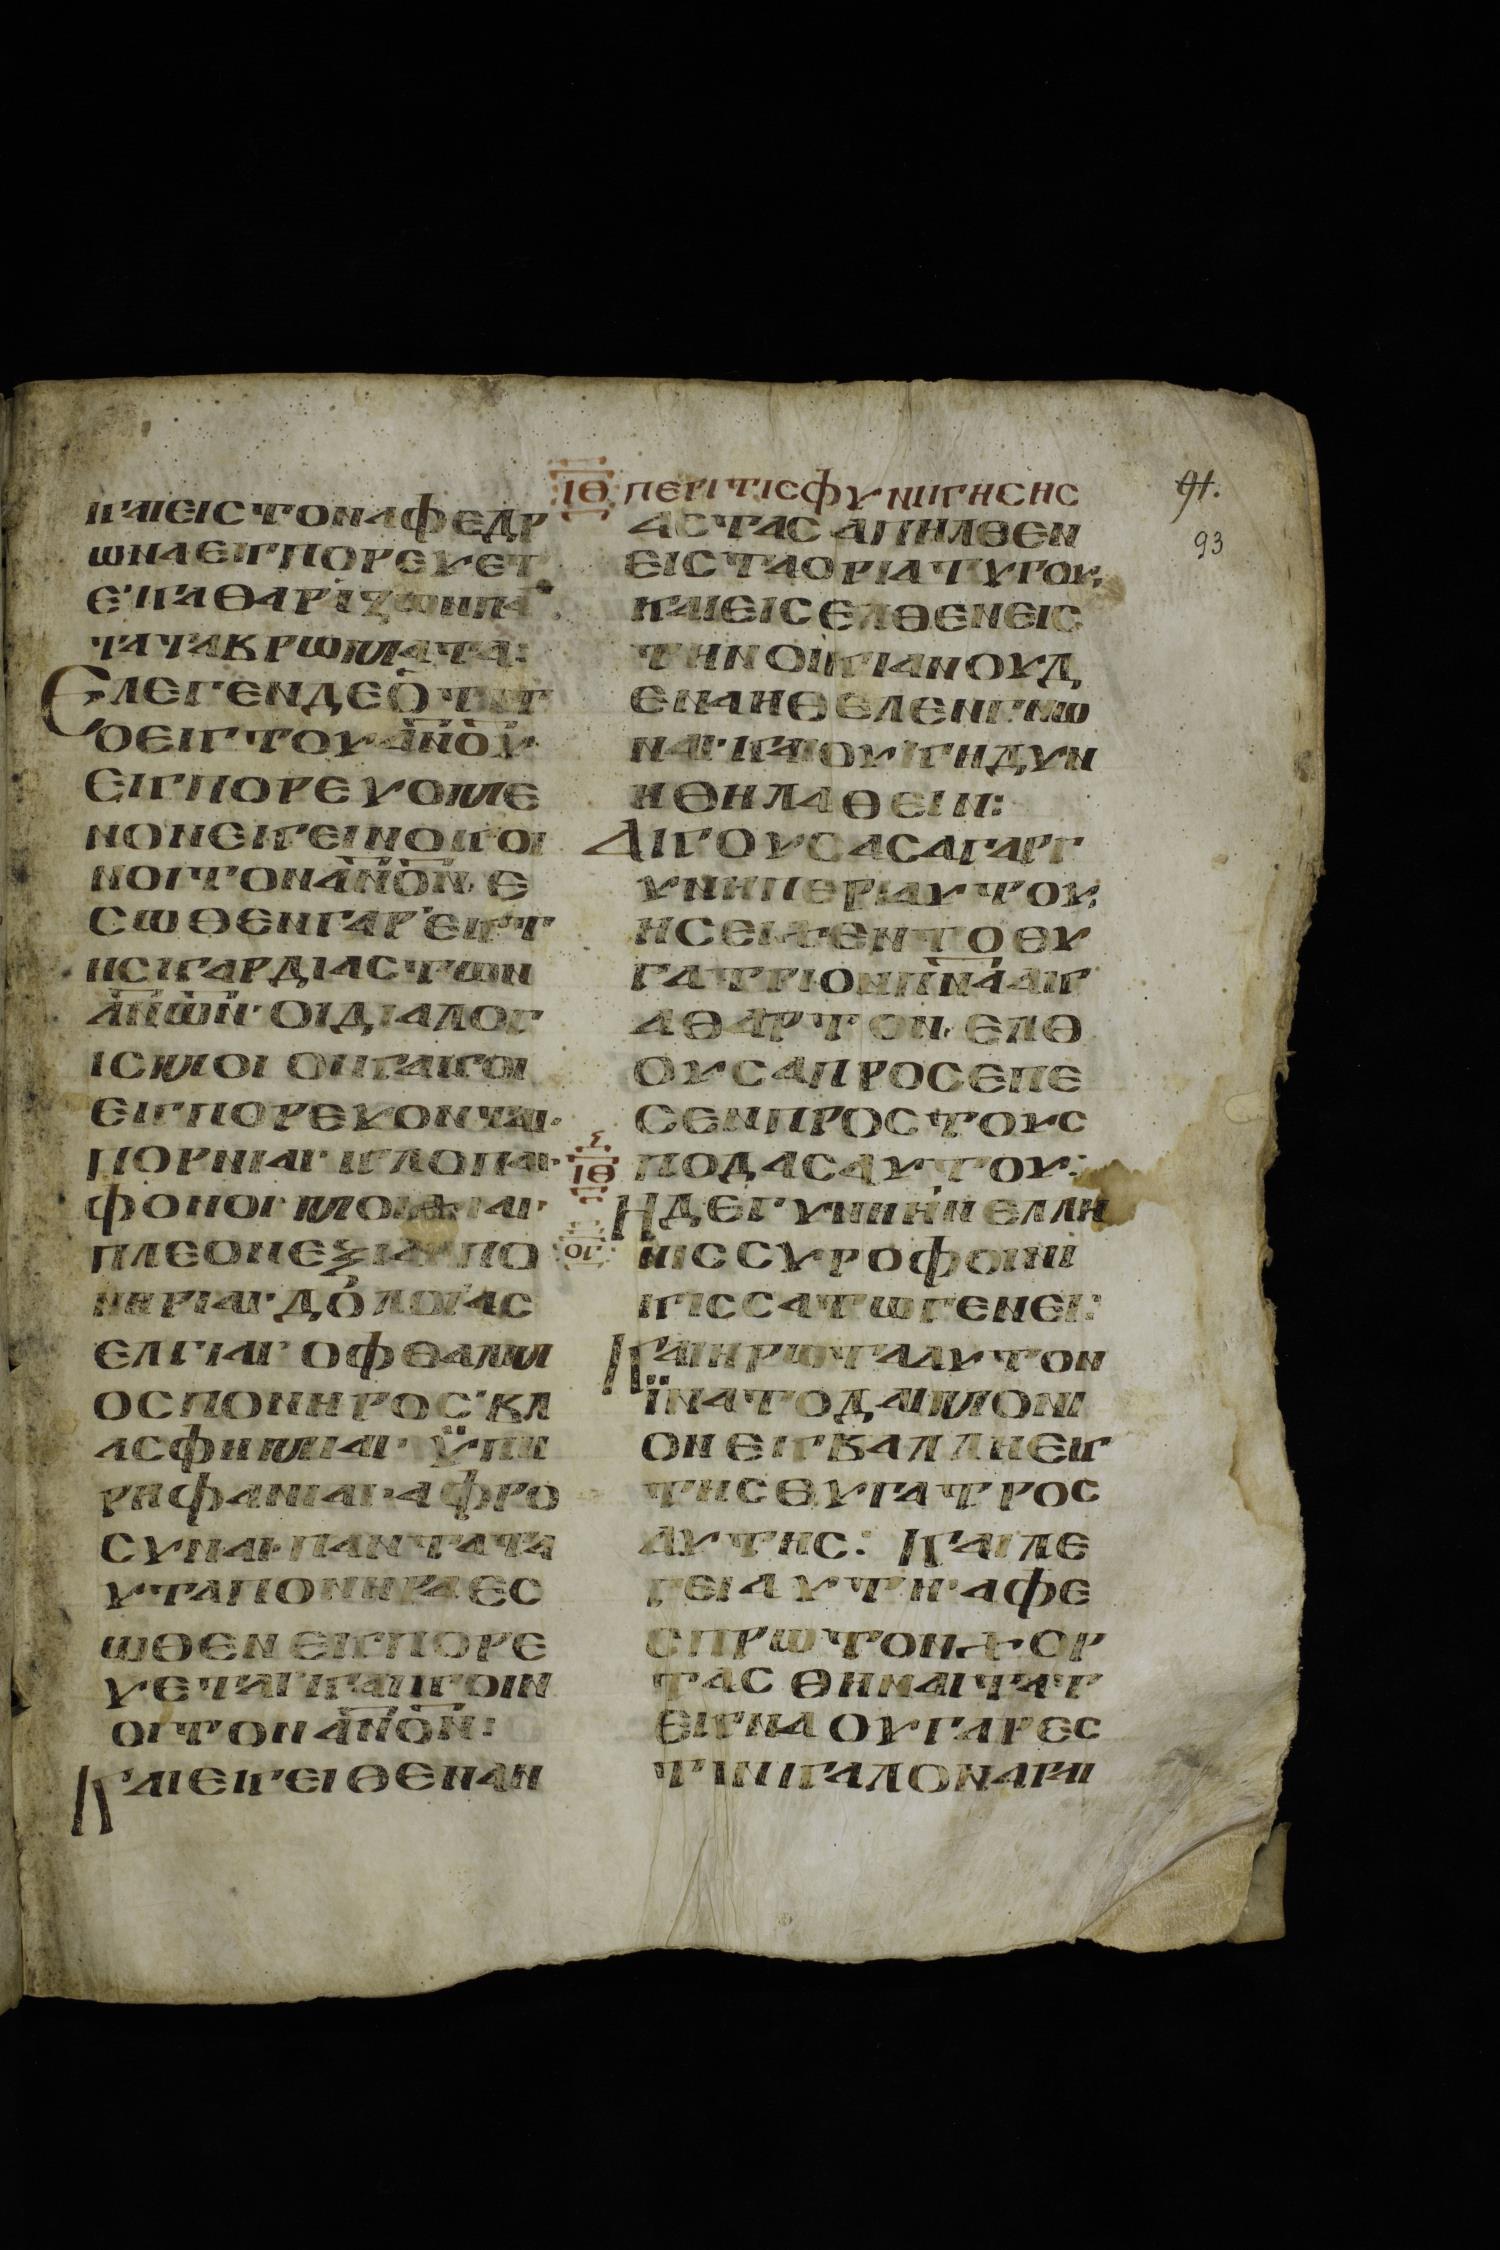 ΙΘ ΠΕΡΙ ΤΙС ΦΥΝΙΙΓΗСΗС
91.
93
ΚΑΙΕΙСΤΟΝΑΦΕΔΡ
ΩΝΑΕΚΠΟΡΕΥΕΤ
Ε·ΚΑΘΑΡΙΖΩΝΠΑ
ΤΑΤΑΒΡΩΜΑΤΑ:
ΕΛΕΓΕΝΔΕΟΤΙΤ
ΟΕΙΓΤΟΥΑΝΟΥ·
ΕΙΓΠΟΡΕΥΟΜΕ
ΝΟΝΕΚΕΙΝΟΚΟΙ
ΝΟΙΤΟΝΑΝΟΝ·Ε
СΩΘΕΝΓΑΡ·ΕΚΤ
ΗСΚΑΡΔΙΑСΤΩΝ
ΑΝΩΝ·ΟΙΔΙΑΛΟΓ
ΙСΜΟΙΟΙΚΑΚΟΙ
ΕΚΠΟΡΕΥΟΝΤΑΙ·
ΠΟΡΝΙΑΙ·ΚΛΟΠΑΙ·
ΦΟΝΟΙ·ΜΟΙΧΙΑΙ·
ΠΛΕΟΝΕΞΙΑΙ·ΠΟ
ΝΗΡΙΑΙ·ΔΟΛΟΙ·ΑС
ΕΛΓΙΑΙ·ΟΦΘΑΛΜ
ΟСΠΟΝΗΡΟС·ΒΛ
ΑСΦΗΜΙΑΙ·ΫΠΗ
ΡΗΦΑΝΙΑΙ·ΑΦΡΟ
СΥΝΑΙ·ΠΑΝΤΑΤΑ
ΥΤΑΠΟΝΗΡΑΕС
ΩΘΕΝΕΚΠΟΡΕ
ΥΕΤΑΙ·ΚΑΙΚΟΙΝ
ΟΙΤΟΝΑΝΟΝ:
ΚΑΙΕΚΕΙΘΕΝΑΝ
ΑСΤΑСΑΠΗΛΘΕΝ
ΕΙСΤΑΟΡΙΑΤΥΡΟΥ·
ΚΑΙΕΙСΕΛΘΕΝΕΙС
ΤΗΝΟΙΚΙΑΝΟΥΔ
ΕΝΑΗΘΕΛΕΝΓΝΩ
ΝΑΙ·ΚΑΙΟΥΚΗΔΥΝ
ΗΘΗΛΑΘΕΙΝ:
ΑΚΟΥСΑСΑΓΑΡΓ
ΥΝΗΠΕΡΙΑΥΤΟΥ·
ΗСΕΙΧΕΝΤΟΘΥ
ΓΑΤΡΙΟΝΠΝΑΑΚ
ΑΘΑΡΤΟΝ·ΕΛΘ
ΟΥСΑΠΡΟСΕΠΕ
СΕΝΠΡΟСΤΟΥС
ΙΘ
ΠΟΔΑСΑΥΤΟΥ:
ΗΔΕΓΥΝΗΗΝΕΛΛΗ
ΟΓ
ΝΙССΥΡΟΦΟΙΝΙ
ΚΙССΑΤΩΓΕΝΕΙ:
ΚΑΙΗΡΩΤΑΑΥΤΟΝ
ΪΝΑΤΟΔΑΙΜΟΝΙ
ΟΝΕΚΒΑΛΛΗΕΚ
ΤΗСΘΥΓΑΤΡΟС
ΑΥΤΗС: ΚΑΙΛΕ
ΓΕΙΑΥΤΗ·ΑΦΕ
СΠΡΩΤΟΝΧΟΡ
ΤΑСΘΗΝΑΙΤΑΤ
ΕΚΝΑΟΥΓΑΡΕС
ΤΙΝΚΑΛΟΝΛΑΒΙ